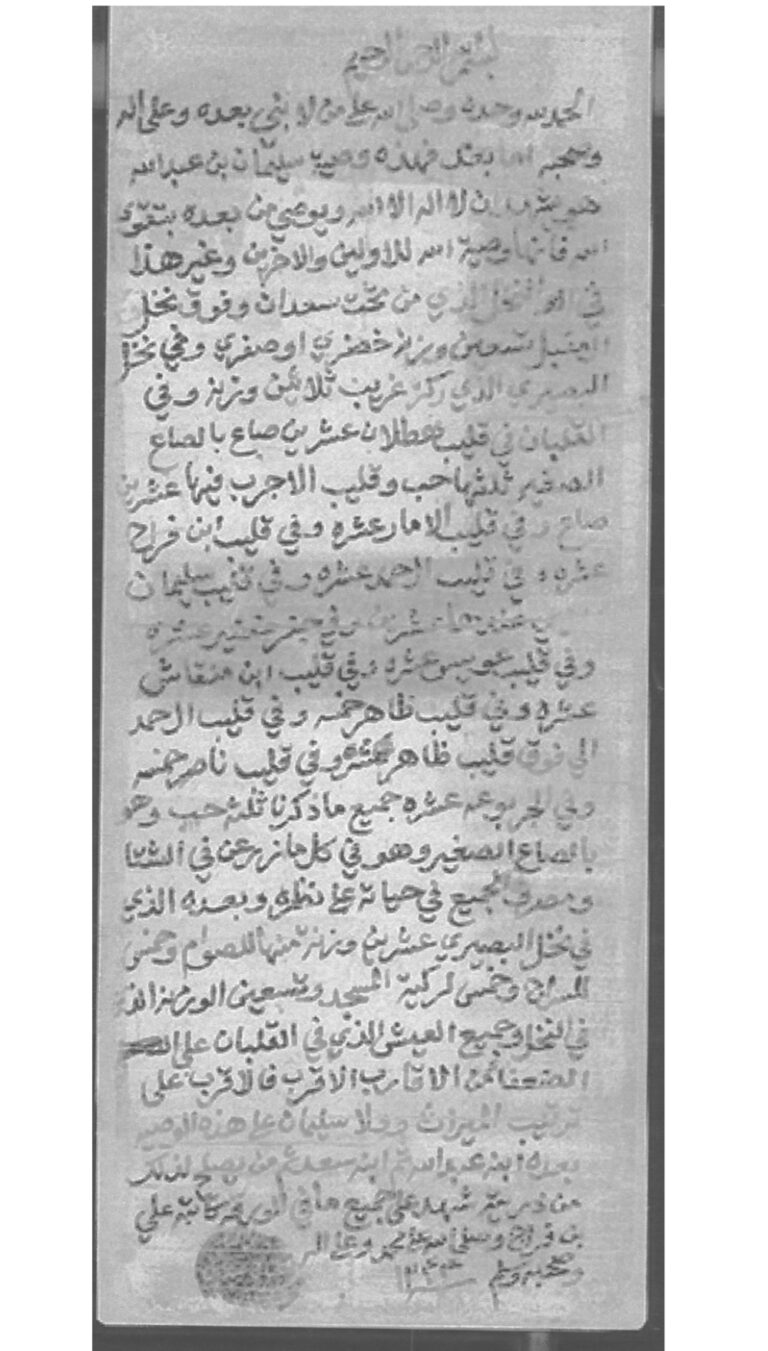 بسم الله الرحمن الرحيم
الحمد لله وحده وصلى الله على من لا نبي بعده وعلى اله
وصحبه اما بعد فهذه وصية سليمان بن عبدالله
هو يشهد ان لا اله الا الله ويوصي من بعده بتقوى
الله فانها وصية الله للاولين والاخرين وغير هذا
في النخل الذي من تحت سعدان وفوق نخل
تسعين وزنة خضري او صفري وفي نخل
البصيري الذي غريب ثلاثين وزنه وفي
القلبان في قليب عشرين صاع بالصاع
الصغير ثلثها حب وقليب الاجرب فيها عشرين
صاع وفي قليب عشره وفي قليب ابن فراج
عشره وفي قليب الحمد عشره وفي قليب سليمان
عشرين وفي عشره
وفي قليب عشره وفي قليب ابن منقاش
عشره وفي قليب ظاهر خمسه وفي قليب الحمد
الي فوق قليب ظاهر عشره وفي قليب ناصر خمسه
وفي الجربوعه عشره جميع ما ذكرنا ثلثه حب وهو
بالصاع الصغير وهو في كل ما زرعن في الشتا
ومصرف الجميع في حياته على نظره وبعده الذي
في نخل البصيري عشرين وزنة منها للصوام وخمس
للسراج وخمس لركية المسجد وتسعين الوزنه الذي
في النخل وجميع العيش الذي في القلبان على
الضعفا من الاقارب الاقرب فالاقرب على
ترتيب الميراث وولا سليمان على هذه الوصيه
بعده ابنه عبدالله ثم ابنه سعد ثم من يصلح لذلك
من ذريته شهد على جميع ما في الورقه كاتبه علي
بن فراج وصلى الله على محمد وعلى اله
وصحبه وسلم